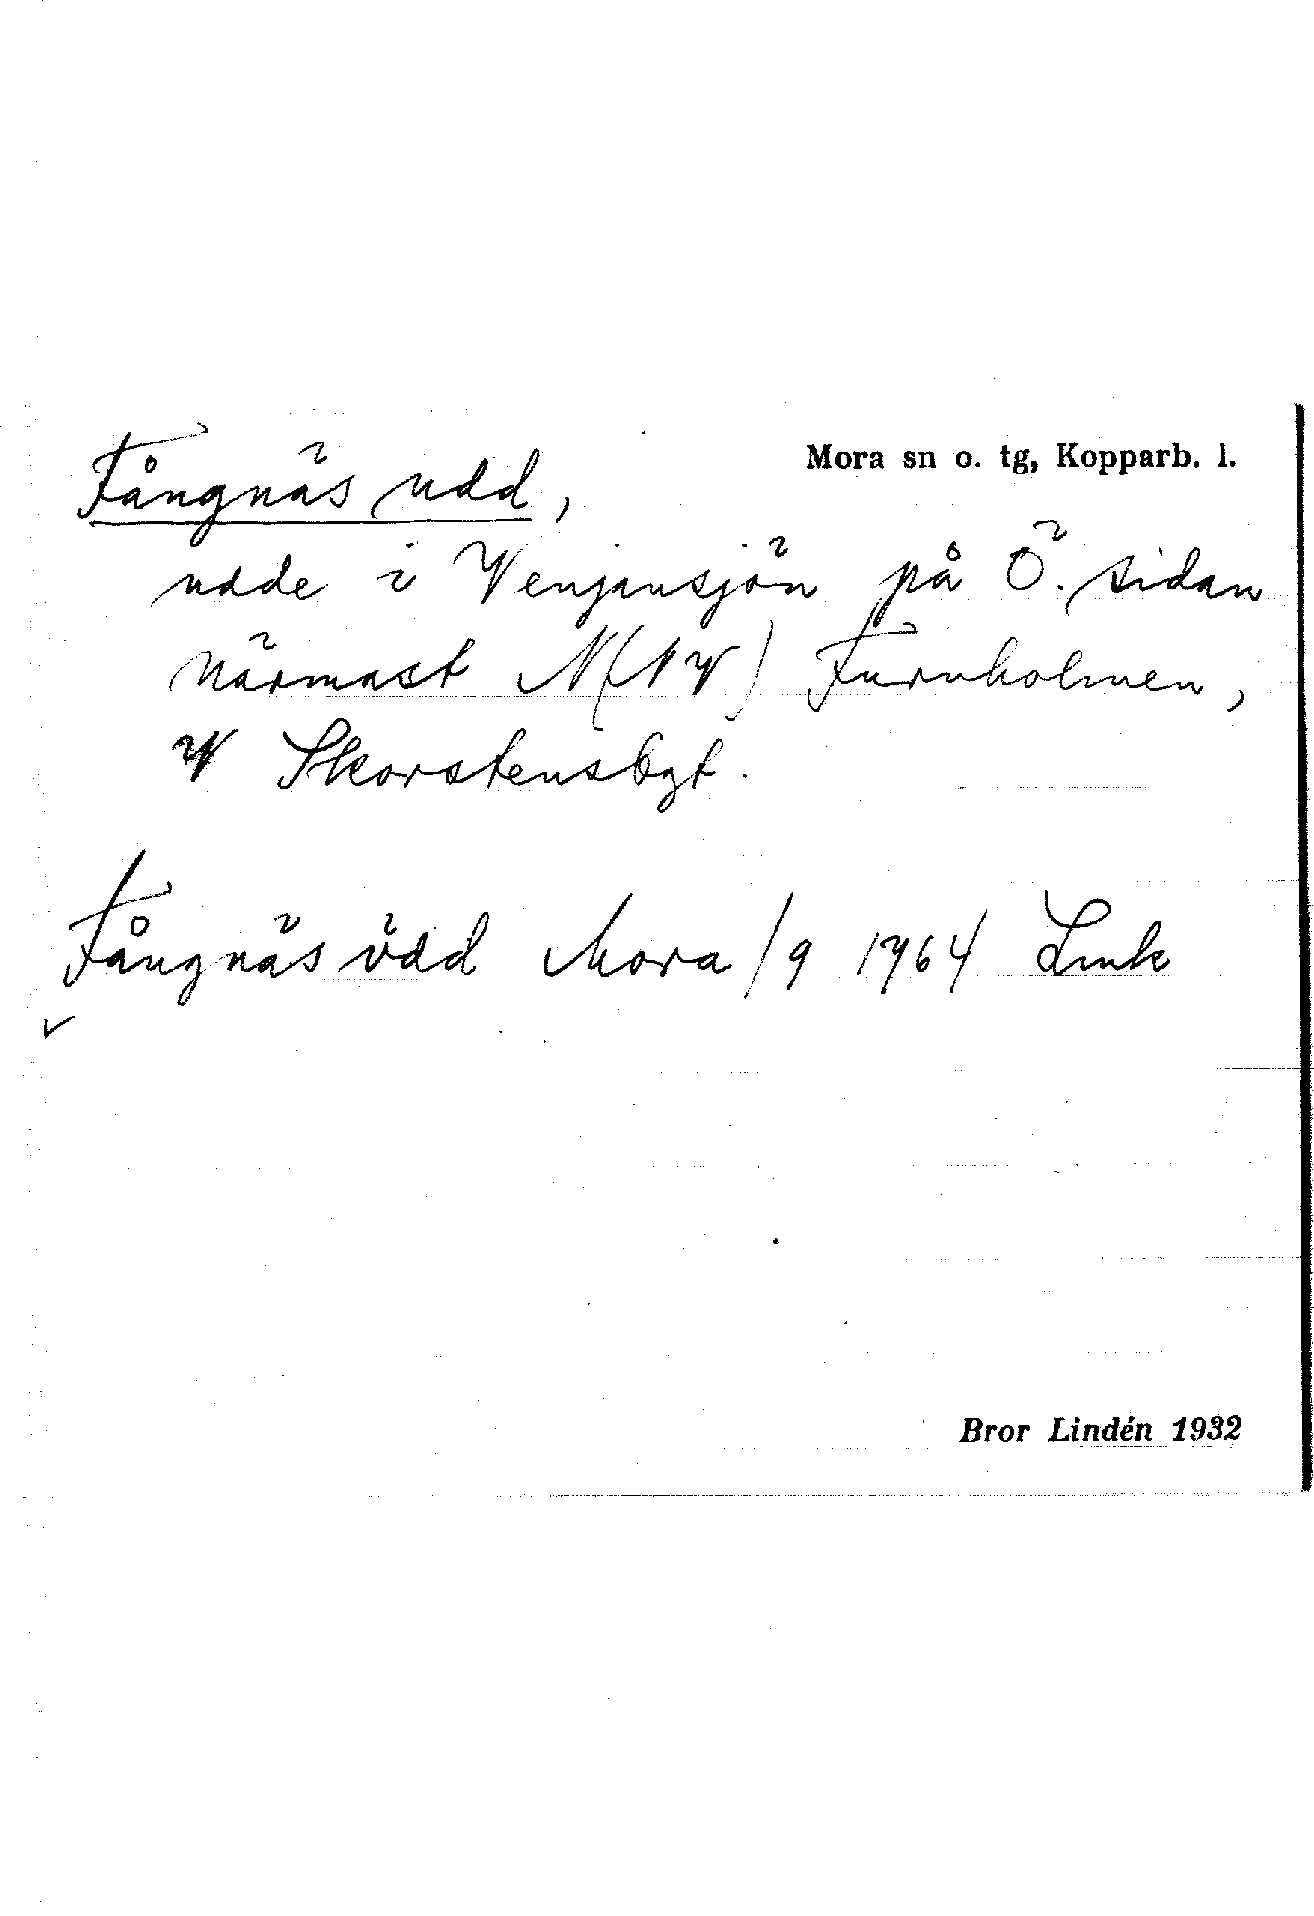 Mora sn o. tg, Kopparb. l.
Fångnäs udd,
udde i Venjansjön på Ö. sidan
närmast N(NV) Furuholmen,
V Skorstensbgt.
Fångnäs ùdd Mora /9 1764 Lmk
Bror Lindén 1932